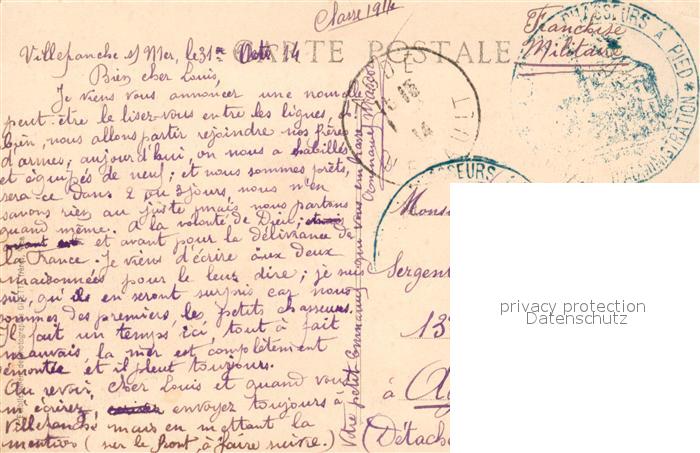 Classe 1914
Franchise
Militaire
CARTE POSTALE
CHASSEURS A PIED
ADMINISTRATION
Villefranche s/ Mer, le 31 Oct. 14
Bien cher Louis,
Je viens vous annoncer une nouvelle
peut-être le lisez-vous entre les lignes,
bien, nous allons partir rejoindre nos frères
d'armes; aujourd'hui, on nous a habillés
et équipés de neuf; et nous sommes prêts,
sera-ce dans 2 ou 3 jours, nous n'en
savons rien au juste mais nous partons
quand même. A la volonté de Dieu;
et avant pour la délivrance de
la France. Je viens d'écrire aux deux
maisonnées pour le leur dire; je suis
sûr, qu'ils en seront surpris car nous
sommes des premiers, les petits chasseurs.
Il fait un temps ici, tout à fait
mauvais, la mer est complètement
démontée et il pleut toujours.
Au revoir, cher Louis et quand vous
m'écrirez, envoyez toujours à
Villefranche mais en mettant la
mention (sur le front, à faire suivre.)
Votre petit Emmanuel qui vous embrasse
Emmanuel
14
CHASSEURS
Monsi
Sergent
13
à A
(Détach
privacy protection
Datenschutz